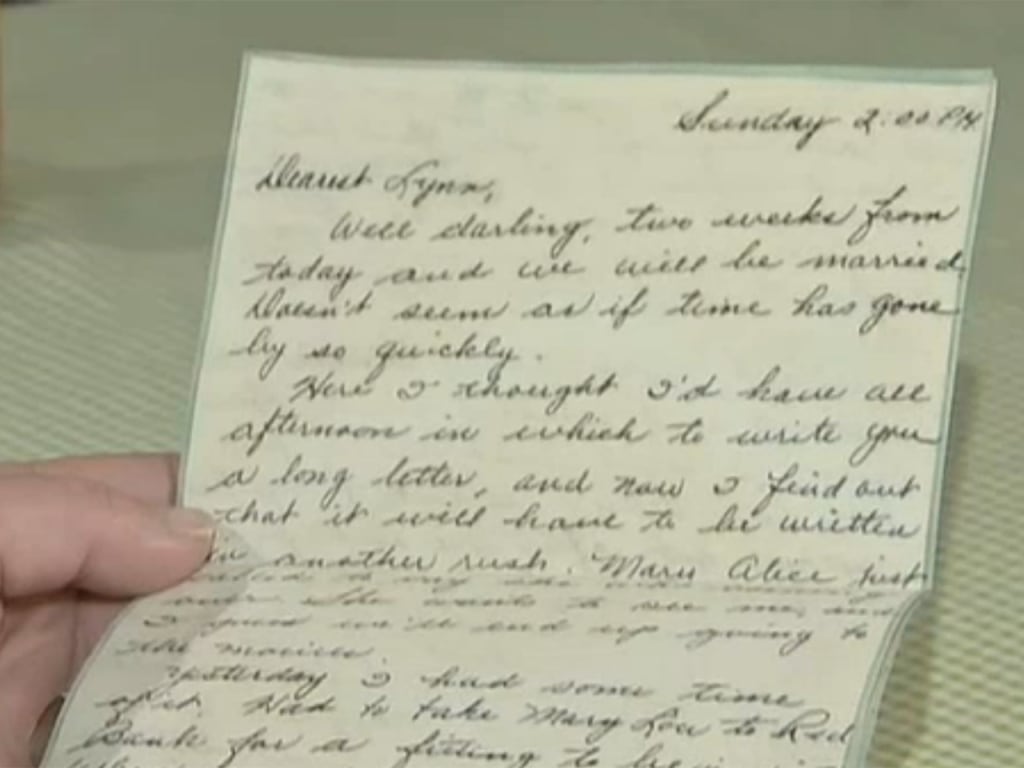 Sunday 2:00 PM
Dearest Lynn,
Well darling, two weeks from
today and we will be married.
Doesn't seem as if time has gone
by so quickly.
Here I thought I'd have all
afternoon in which to write you
a long letter, and now I find out
that it will have to be written
in another rush. Mary Alice just
called to say she was coming
over. She wants to see me, and
I guess we'll end up going to
the movies.
Yesterday I had some time
of it. Had to take Mary Lou to Red
Bank for a fitting to be in